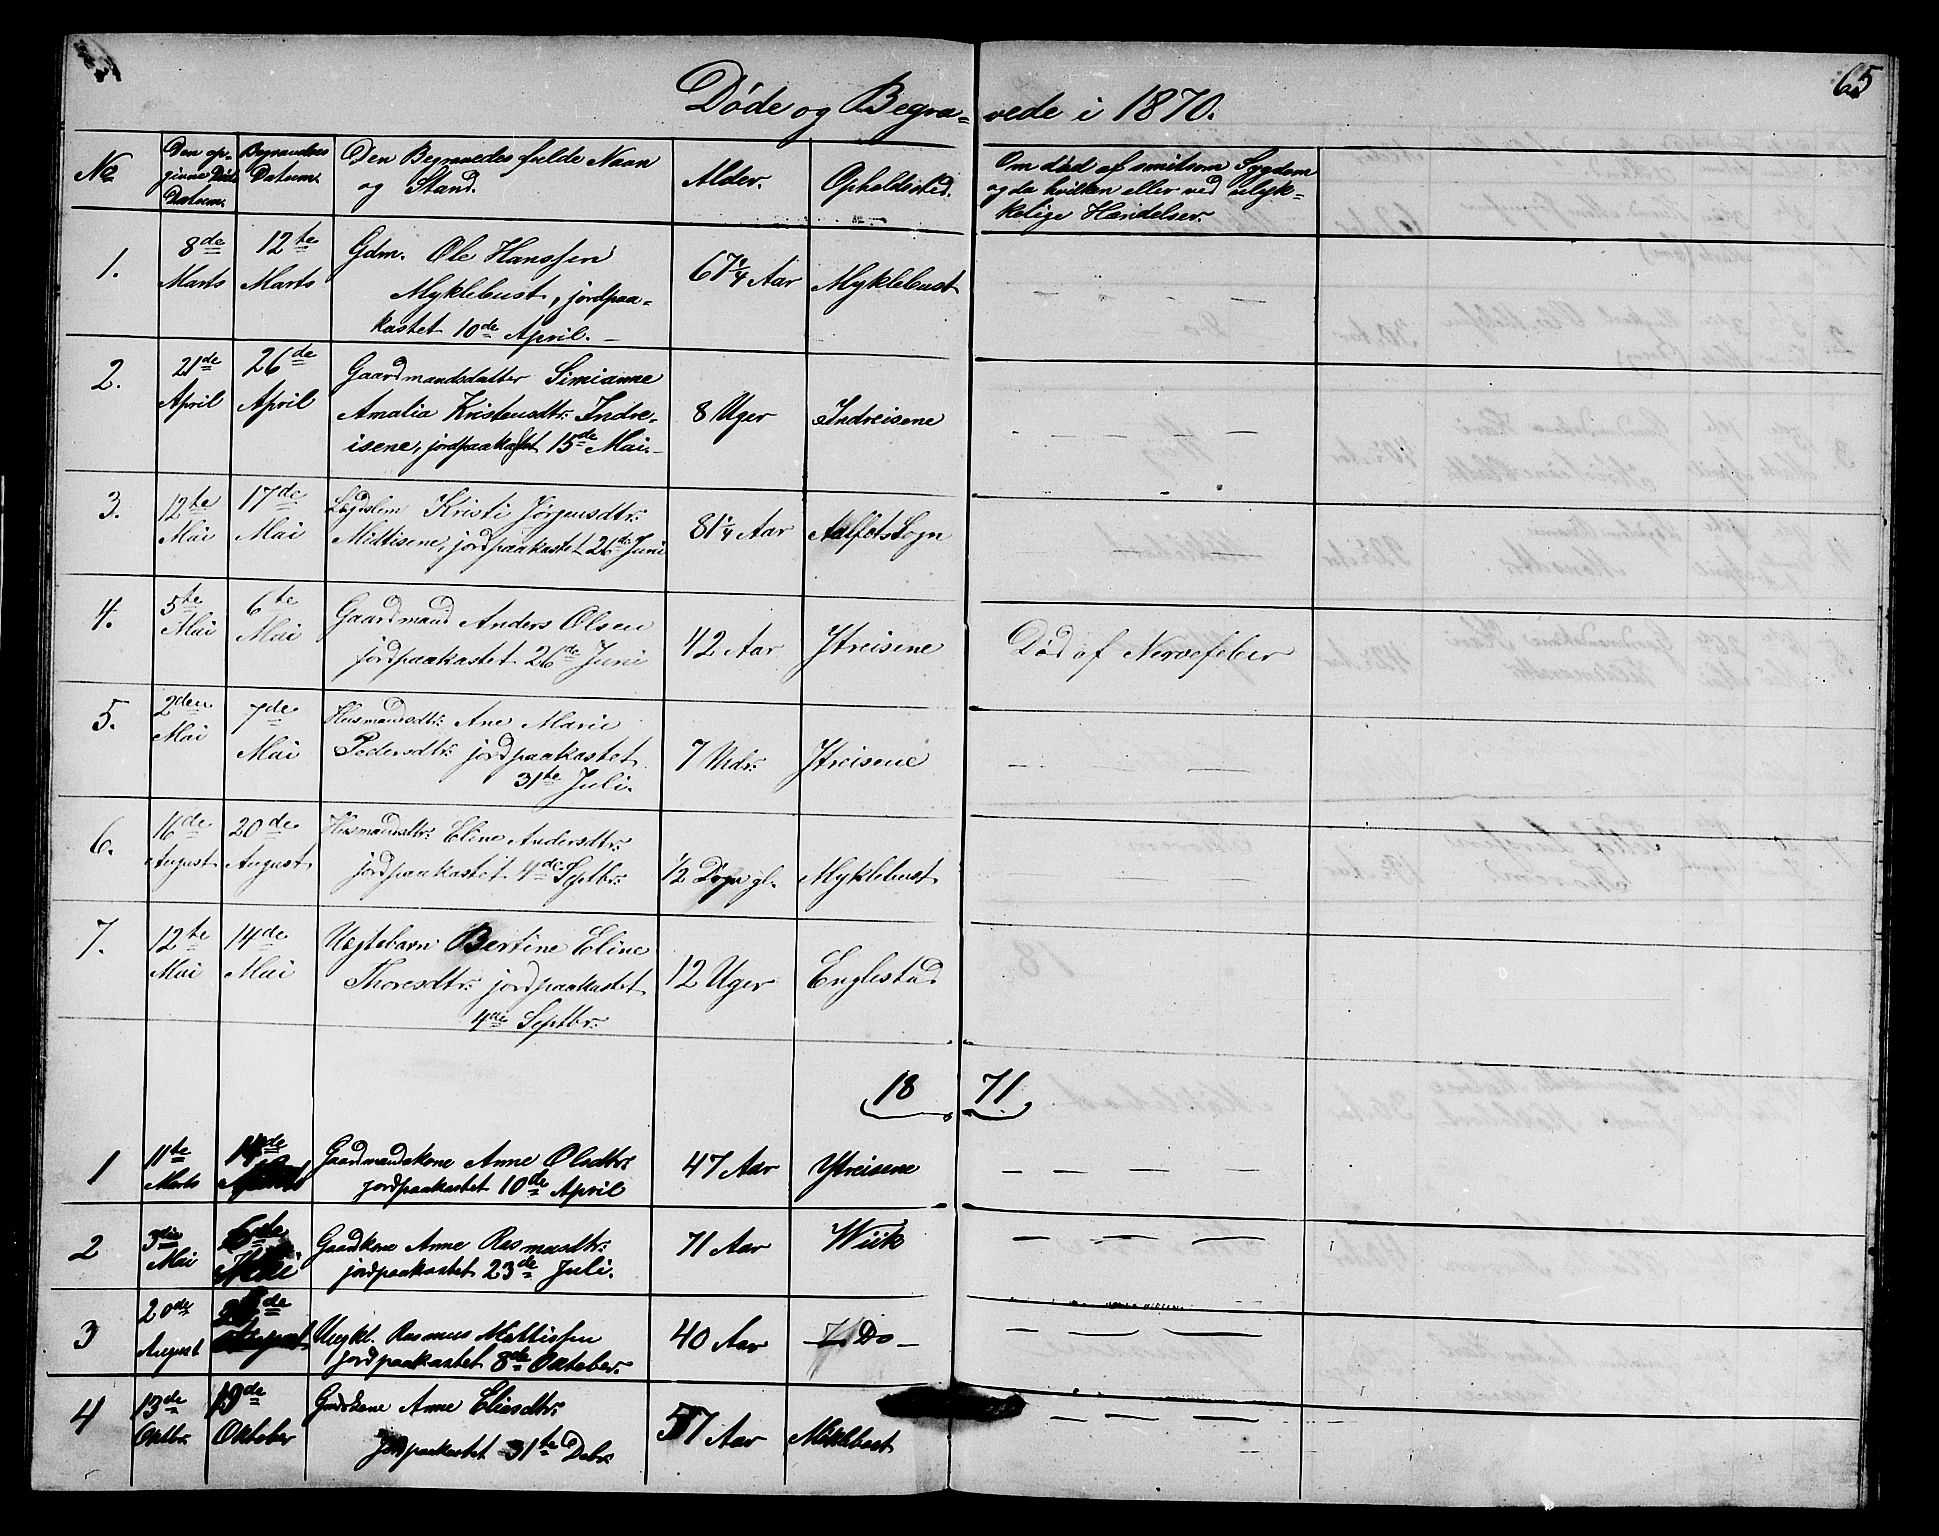 65
Døde og Begra= vede i 1870.
No
Den op-
givne Døds
Datum.
Begravelses
Datum.
Den Begravedes fulde Navn
og Stand.
Alder.
Opholdssted.
Om død af smitsom Sygdom
og da hvilken eller ved ulyk-
kelige Hændelser.
1.
8de
Marts
12te
Marts
Gdm. Ole Hanssen
Myklebust, jordpaa-
kastet 10de April.
67 1/4 Aar
Myklebust
2.
21de
April
26de
April
Gaardmandsdatter Simianne
Amalia Kristensdtr: Indre-
isene, jordpaakastet 15de Mai.
8 Uger
Indreisene
3.
12te
Mai
17de
Mai
Lægdslem Kristi Jørgensdtr:
Midtisene, jordpaakastet 26de Juni
81 1/4 Aar
Aalfots Sogn
4.
5te
Mai
6te
Mai
Gaardmand Anders Olsen
jordpaakastet 26de Juni
42 Aar
Ytreisene
Død af Nervefeber
5.
2den
Mai
7de
Mai
Husmandsdtr: Ane Marie
Pedersdtr: jordpaakastet
31te Juli.
7 Mdr:
Ytreisene
6.
16de
August
20de
August
Husmandsdtr: Eline Andersdtr:
jordpaakastet 4de Septbr:
1/2 Døgn gl.
Myklebust
7.
12te
Mai
14de
Mai
Uægtebarn Bertine Eline
Thoresdtr: jordpaakastet
4de Septbr:
12 Uger
Englestad
18 71
1
11te
Marts
14de
Gaardmandskone Anne Olsdtr:
jordpaakastet 10de April
47 Aar
Ytreisene
2
3die
Mai
6te
Mai
Gaardkone Anne Rasmusdtr:
jordpaakastet 23de Juli.
71 Aar
Wiik
3
20de
August
August
Ungkl. Rasmus Mattissen
jordpaakastet 8de Oktober.
40 Aar
Do
4
13de
Oktbr:
19de
Oktober
Anne Eliasdtr:
jordpaakastet 31te Debr:
57 Aar
Myklebost